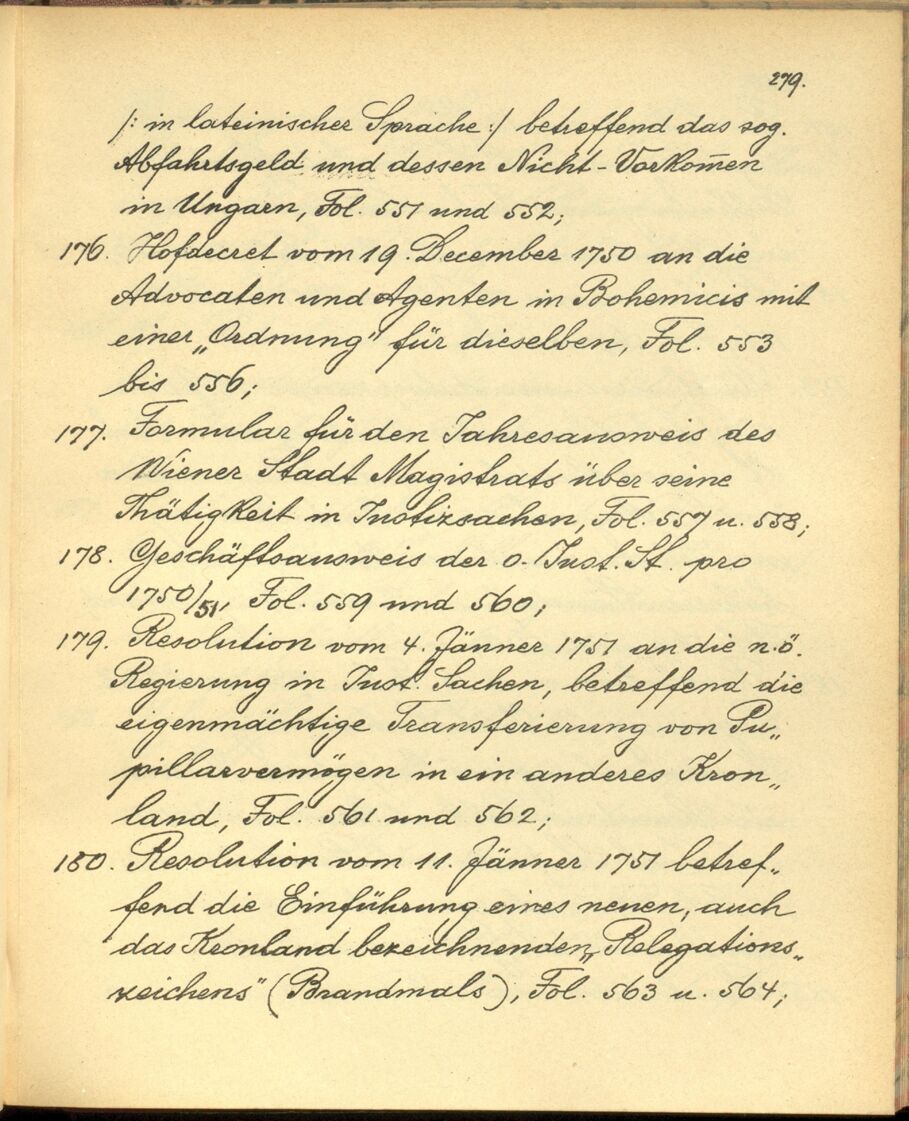 279.
/: in lateinischer Sprache :/ betreffend das sog.
Abfahrtsgeld und dessen Nicht-Vorkom̅en
in Ungarn, Fol. 551 und 552;
176. Hofdecret vom 19. December 1750 an die
Advocaten und Agenten in Bohemicis mit
einer „Ordnung" für dieselben, Fol. 553
bis 556;
177. Formular für den Jahresausweis des
Wiener Stadt Magistrats über seine
Thätigkeit in Justizsachen, Fol. 557 u. 558;
178. Geschäftsausweis der o. Just. St. pro
1750/51, Fol. 559 und 560;
179. Resolution vom 4. Jänner 1751 an die n.ö.
Regierung in Just. Sachen, betreffend die
eigenmächtige Transferierung von Pu„
pillarvermögen in ein anderes Kron„
land, Fol. 561 und 562;
180. Resolution vom 11. Jänner 1751 betref„
fend die Einführung eines neuen, auch
das Kronland bezeichnenden „Relegations„
zeichens" (Brandmals), Fol. 563 u. 564;